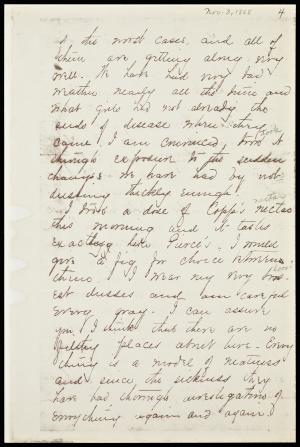 Nov. 3, 1868
4
of the worst cases, and all of
them are getting along very
well. We have had very bad
weather nearly all the time and
what girls had not already the
seeds of disease when they
came, I am convinced, took it
through exposure to the sudden
changes we have had by not
dressing thickly enough.
I took a dose of Copp's nectar
this morning and it tastes
exactly like Pierce's. I would
give a fig for choice between
them. I wear my very
est dresses and am careful
every way. I can assure
you, I think that there are no
filthy places about here. Every
thing is a model of neatness
and since the sickness they
have had thorough investigations of
everything again and again.